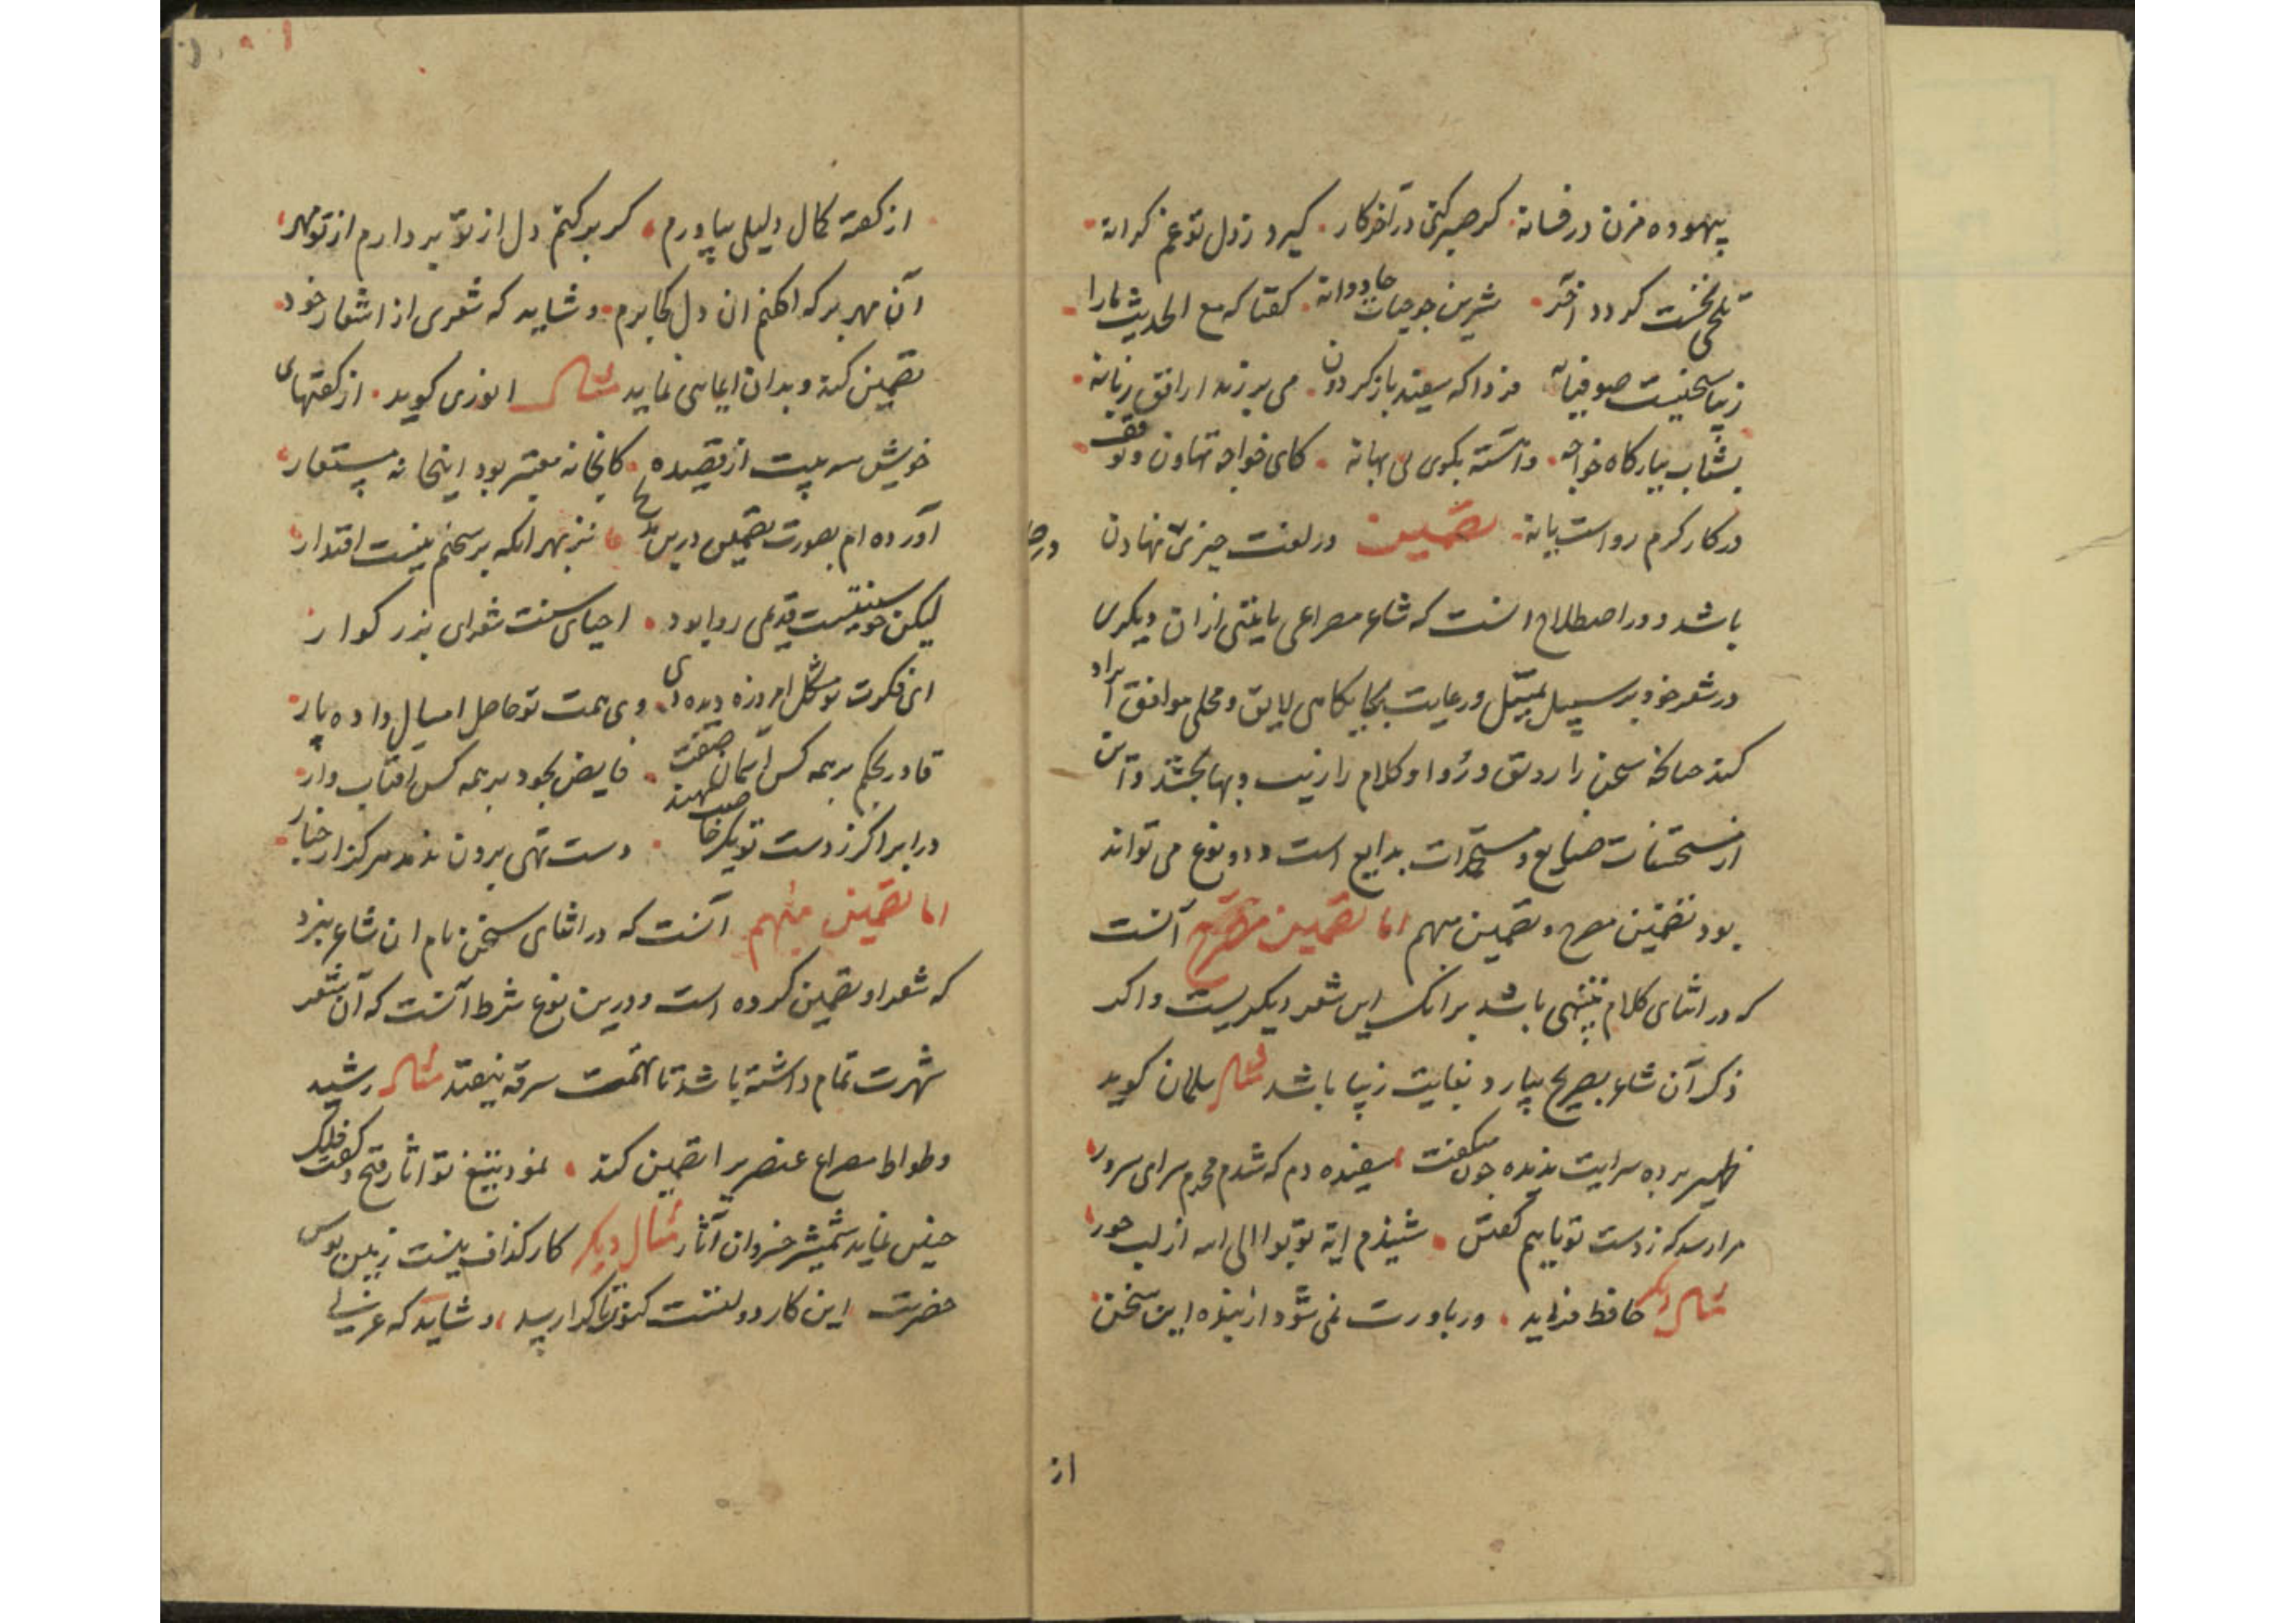 بیهوده مزن در فسانه گر صبر کنی در آخر کار گیرد ز دل تو غم کرانه
تلخی نخست کردد آخر شیرین جو حیات جاودانه کفتا که مع الحدیث ما را
زیبا سخنیست صوفیانه فردا که سفید باز کردون می بر زند از افق زبانه
بشتاب ببارکاه خواجه وآهسته بکوی بی بهانه کای خواجه تهاون و توقف
در کار کرم رواست یا نه تضمین در لغت چیزی نهادن در
باشد و در اصطلاح انست که شاعر مصراعی یا بیتی از ان دیکری
در شعر خود بر سبیل تمثیل و رعایت بجایکاهی لایق و محلی موافق ایراد
کند جنانکه سخن را رونق و رُوا و کلام را زیب و بها بخشد و این
از مستحسنات صنایع و بدایع است و دو نوع می تواند
بود تضمین مصرح و تضمین مبهم اما تضمین مصرح آنست
که در اثنای کلام تنبیهی باشد بر انک این شعر دیکریست و اکر
ذکر آن شاعر بصریح بیارد بغایت زیبا باشد مثال سلمان کوید
ظهیر برده سرایت بدیده جون میکفت سفیده دم که شدم محرم سرای سرور
مرا رسد که ز دست تو یابیم کفتش شنیدم ایه توبوا الی الله از لب حور
مثال دیکر حافظ فرماید ور باورت نمی شود از بنده این سخن
از
از کفته کمال دلیلی بیاورم کر بر کنم دل از تو بردارم از تو مهر
آن مهر بر که افکنم ان دل کجا برم و شاید که شعری از اشعار خود
تضمین کند و بدان ایمایی نماید مثال انوری کوید از کفتهای
خویش سه بیت از قصیده کانجا نه معتبر بود اینجا نه مستعار
آورده ام بصورت تضمین درین مدیح نز بهر انکه بر سخنم نیست اقتدار
لیکن جو سنتیست قدیمی روا بود احیای سنت شعرای بزرکوار
ای فکرت تو مشکل امروز دیده دی وی همت تو حاصل امسال داده پار
قادر بحکم بر همه کس آسمان صفت فایض بجود بر همه کس افتاب وار
در ابر اکر ز دست تو یک خاصیت نهند دست تهی برون ندمد هرکز از جنار
اما تضمین مبهم آنست که در اثنای سخن نام ان شاعر نبرد
که شعر او تضمین کرده است و درین نوع شرط آنست که آن شعر
شهرت تمام داشته باشد تا تهمت سرقه نیفتد مثال رشید
وطواط مصراع عنصری را تضمین کند نمود بتیغ تو اثار فتح و کفت فلک
جنین نماید شمشیر خسروان آثار مثال دیکر کار کذاف نیست زمین بوس
حضرت این کار دولتست کنون تا کرا رسد و شاید که عربی